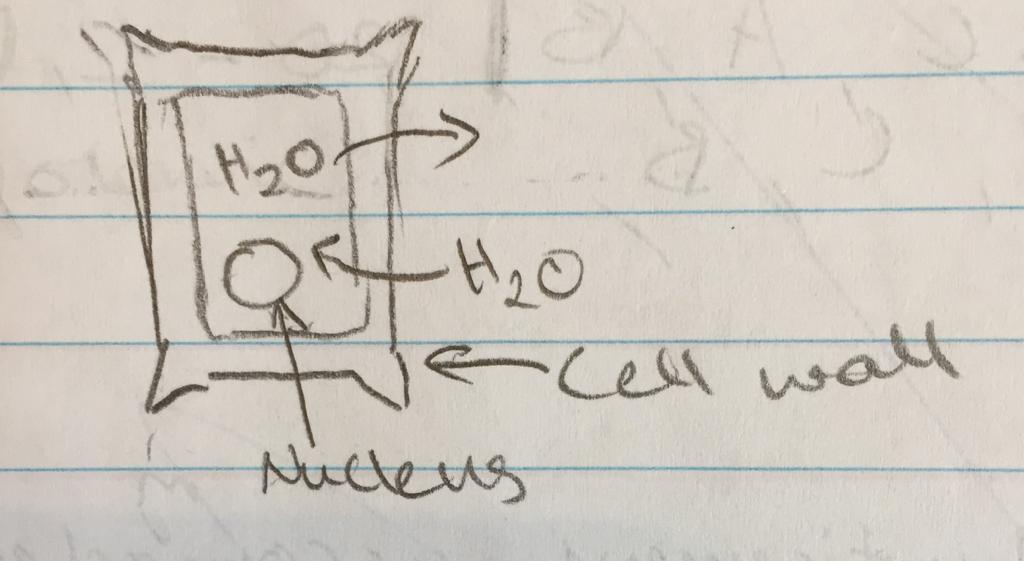 H₂O
H₂O
Cell wall
Nucleus